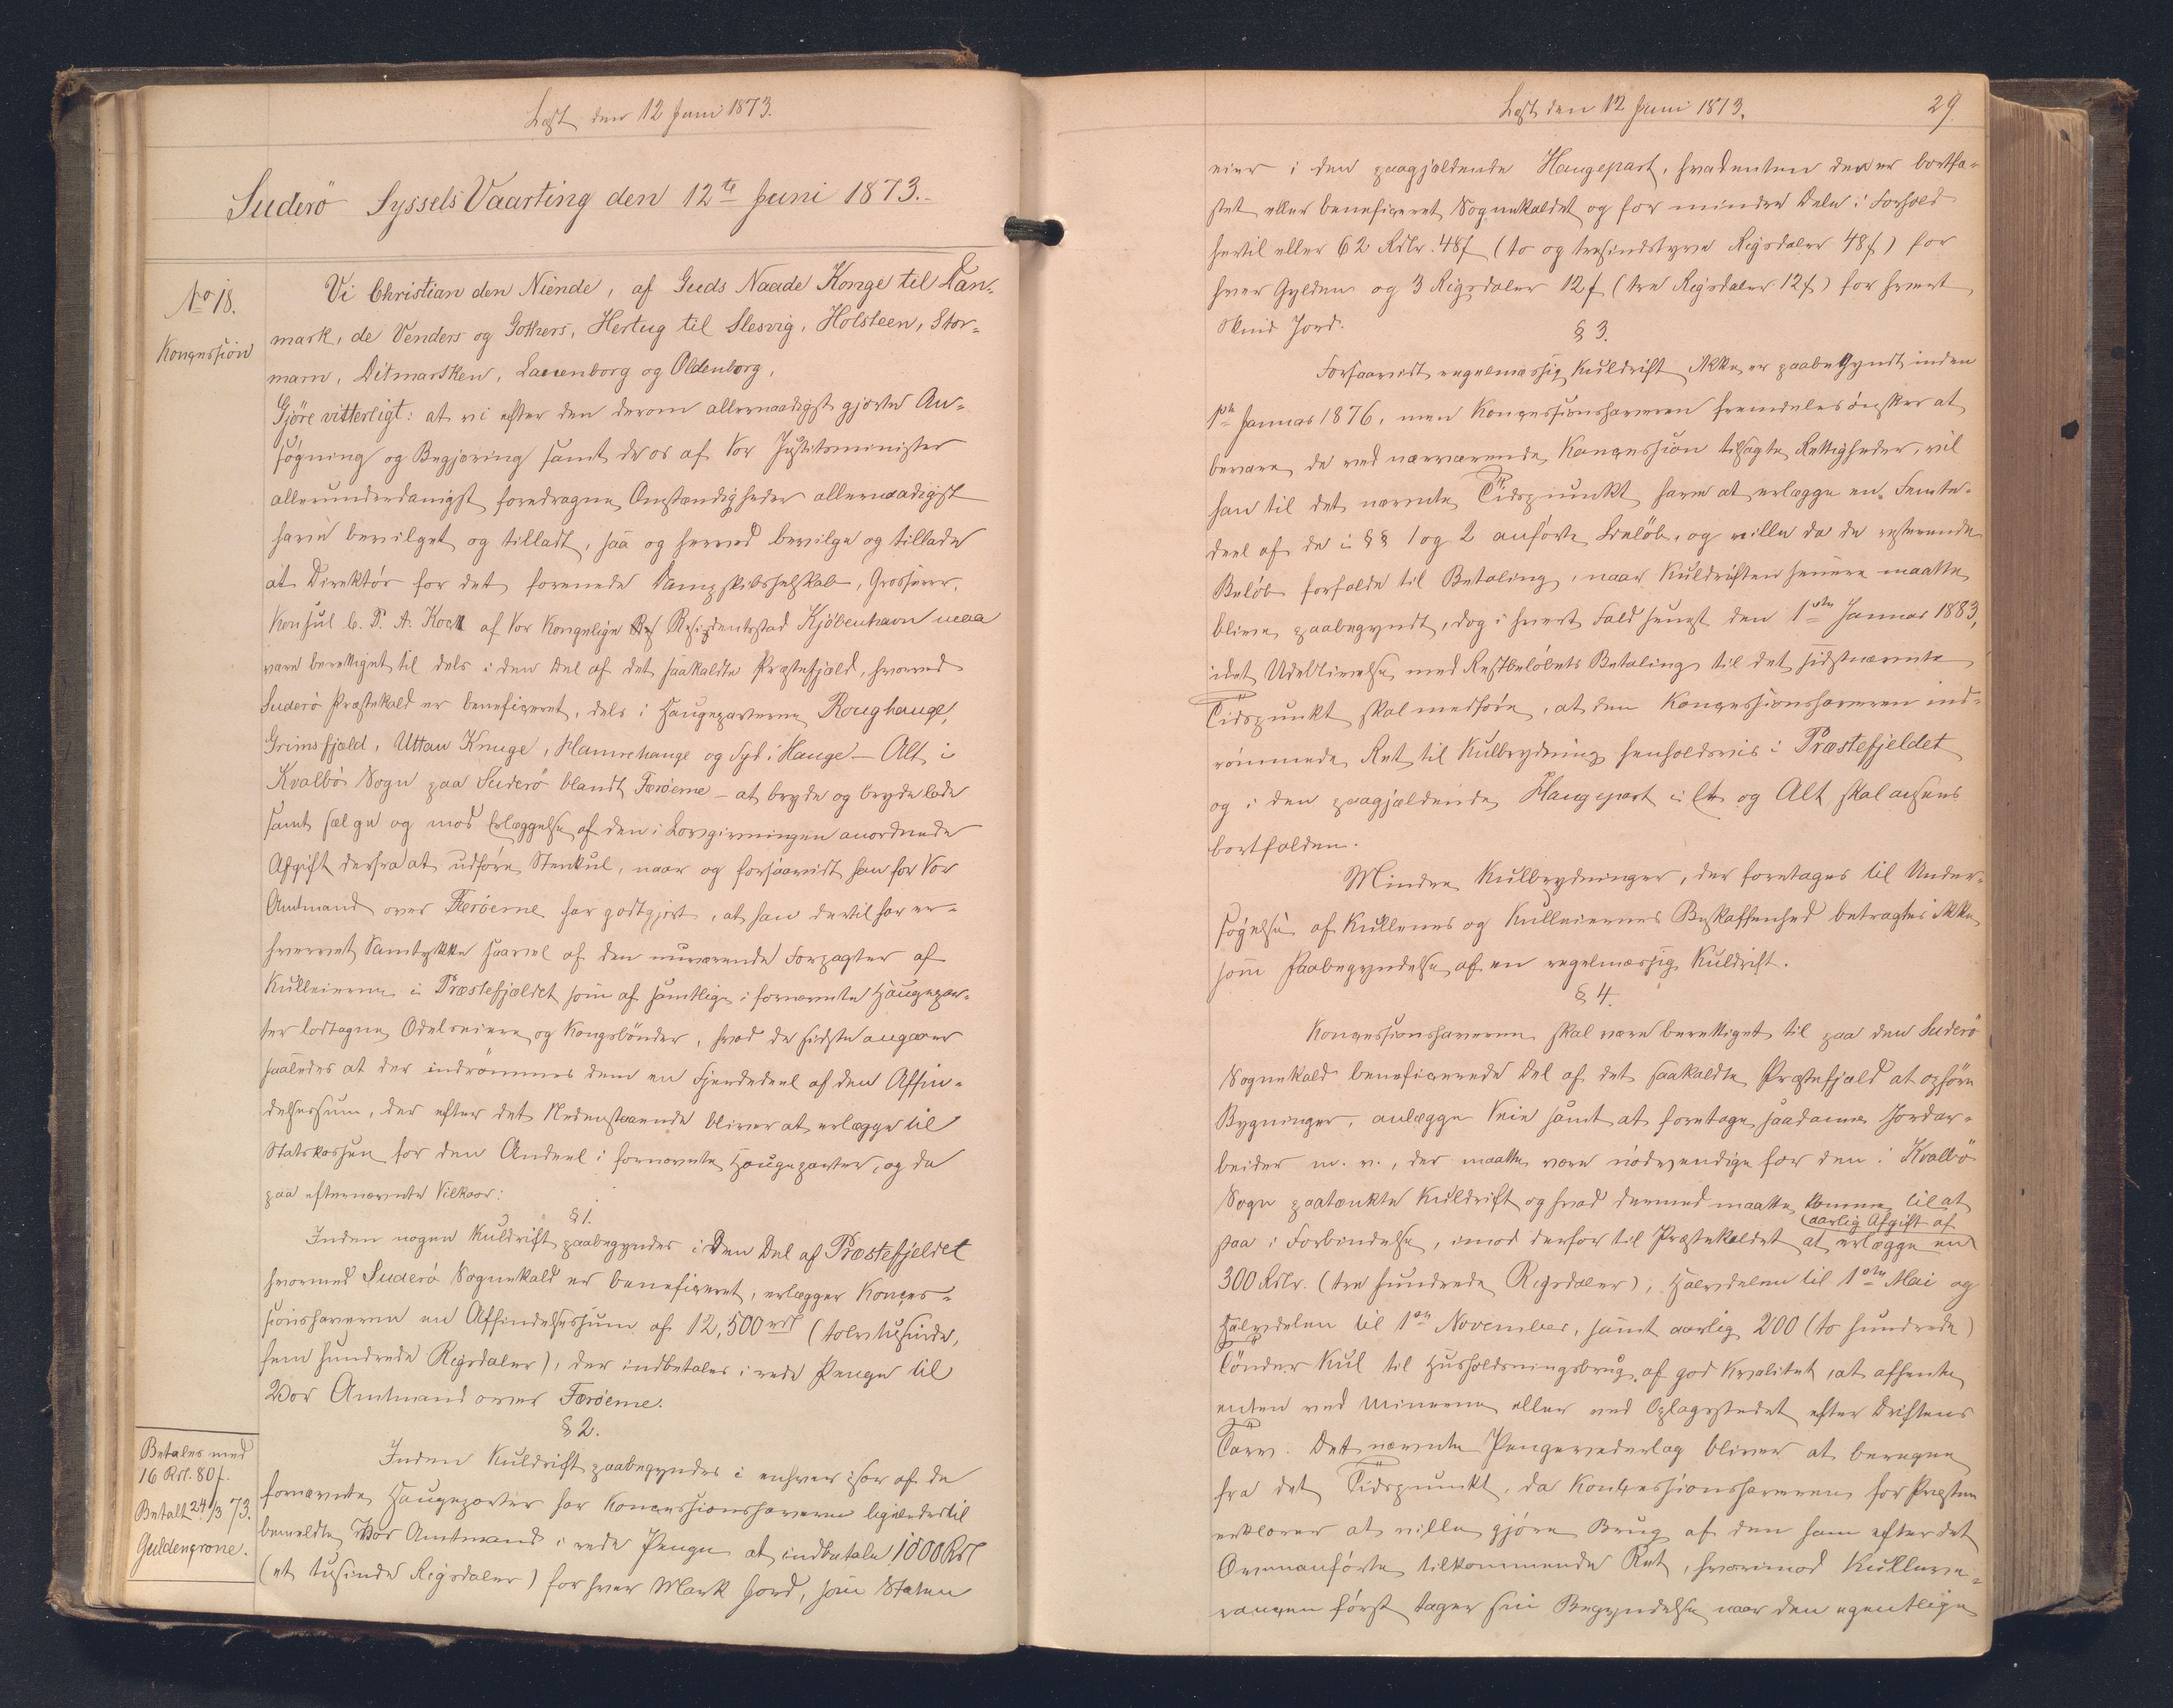 Læst den 12 Juni 1873.
Suderö Syssels Vaarting den 12te Juni 1873.
No 18.
Konçession
Vi Christian den Niende, af Guds Naade Konge til Dan-
mark, de Venders og Gothers, Hertug til Slesvig, Holsteen, Stor-
marn, Ditmarsken, Lauenborg og Oldenborg,
Gjöre vitterligt: at vi efter den derom allernaadigst gjorte An-
søgning og Begjæring samt de os af Vor Justitsminister
allerunderdanigst foredragne Omstændigheder allernaadigst
have bevilget og tilladt, saa og herved bevilge og tillade
at Direktör for det forenede Dampskibsselskab, Grosserer,
Konsul C. P. A. Koch af Vor Kongelige Residentsstad Kjöbenhavn maa
være berettiget til dels i den Del af det saakaldte Præstefjeld, hvormed
Suderö Præstekald er beneficeret, dels i Haugeparterne Roughauge,
Grimsfjæld, Uttan Knuge, Hamrehauge og Syd i Hauge – Alt i
Kvalbö Sogn paa Suderö blandt Færöerne – at bryde og bryde lade
samt sælge og mod Erlæggelse af den i Lovgivningen anordnede
Afgift derfra at udføre Stenkul, naar og forsaavidt han for Vor
Amtmand over Færöerne har godtgjort, at han dertil har er-
hvervet Samtykke saavel af den nuværende Forpagter af
Kulleierne i Præstefjældet som af samtlige i fornævnte Haugepar-
ter lodtagne Odelseiere og Kongsbönder, hvad de sidste angaaer
saaledes at der indrömmes dem en Fjerdedeel af den Affin-
delsessum, der efter det Nedenstaaende bliver at erlægge til
Statskassen for den Andeel i fornævnte Haugeparter, og da
paa efternævnte Vilkaar:
§ 1.
Inden nogen Kuldrift paabegyndes i den Del af Præstefjeldet
hvormed Suderö Sognekald er beneficeret, erlægger Konces-
sionshaveren en Affindelsessum af 12,500 rdl (tolvtusinde,
fem hundrede Rigsdaler), der indbetales i rede Penge til
Vor Amtmand over Færöerne.
§ 2.
Inden Kuldrift paabegyndes i enhver især af de
fornævnte Haugeparter har Koncessionshaveren ligeledes til
bemeldte Vor Amtmand i rede Penge at indbetale 1000 Rdl
(et tusinde Rigsdaler) for hver Mark Jord, som Staten
Betales med
16 Rdl. 80 f.
Betalt 24/3 73.
Guldencrone.
Læst den 12 Juni 1873.
29.
eier i den paagjældende Haugepart, hvadenten den er bortfæ-
stet eller beneficeret Sognekaldet og for mindre Dele i Forhold
hertil eller 62 Rdlr. 48 f (to og tresindstyve Rigsdaler 48 f) for
hver Gylden og 3 Rigsdaler 12 f (tre Rigsdaler 12 f) for hvert
Skind Jord.
§ 3.
Forsaavidt regelmæssig Kuldrift ikke er paabegyndt inden
1ste Januar 1876, men Koncessionshaveren fremdeles önsker at
bevare de ved nærværende Koncession tilsagte Rettigheder, vil
han til det nævnte Tidspunkt have at erlægge en Femte-
deel af de i §§ 1 og 2 anförte Beløb, og ville da de resterende
Beløb forfalde til Betaling, naar Kuldriften senere maatte
blive paabegyndt, dog i hvert Fald senest den 1ste Januar 1883,
idet Udeblivelse med Restbeløbets Betaling til det sidstnævnte
Tidspunkt skal medføre, at den Koncessionshaveren ind-
römmede Ret til Kulbrydning henholdsvis i Præstefjeldet
og i den paagjældende Haugepart i Et og Alt skal ansees
bortfalden.
Mindre Kulbrydninger, der foretages til Under-
søgelse af Kullenes og Kulleiernes Beskaffenhed betragtes ikke
som Paabegyndelse af en regelmæssig Kuldrift.
§ 4.
Koncessionshaveren skal være berettiget til paa den Suderö
Sognekald beneficerede Del af det saakaldte Præstefjeld at opføre
Bygninger, anlægge Veie samt at foretage saadanne Jordar-
beider m. v., der maatte være nödvendige for den i Kvalbö
Sogn paatænkte Kuldrift og hvad dermed maatte komme til at
staa i Forbindelse, imod derfor til Præstekaldet at erlægge en
(aarlig Afgift af
300 Rdlr. (tre hundrede Rigsdaler), Halvdelen til 1ste Mai og
Halvdelen til 1ste November, samt aarlig 200 (to hundrede)
Tönder Kul til Husholdningsbrug, af god Kvalitet, at afhente
enten ved Minerne eller ved Oplagsstedet efter Driftens
Tarv. Det nævnte Pengevederlag bliver at beregne
fra det Tidspunkt, da Koncessionshaveren for Præsten
erklærer at ville gjøre Brug af den ham efter det
Ovenanførte tilkommende Ret, hvorimod Kulleve-
rancen först tager sin Begyndelse naar den egentlige